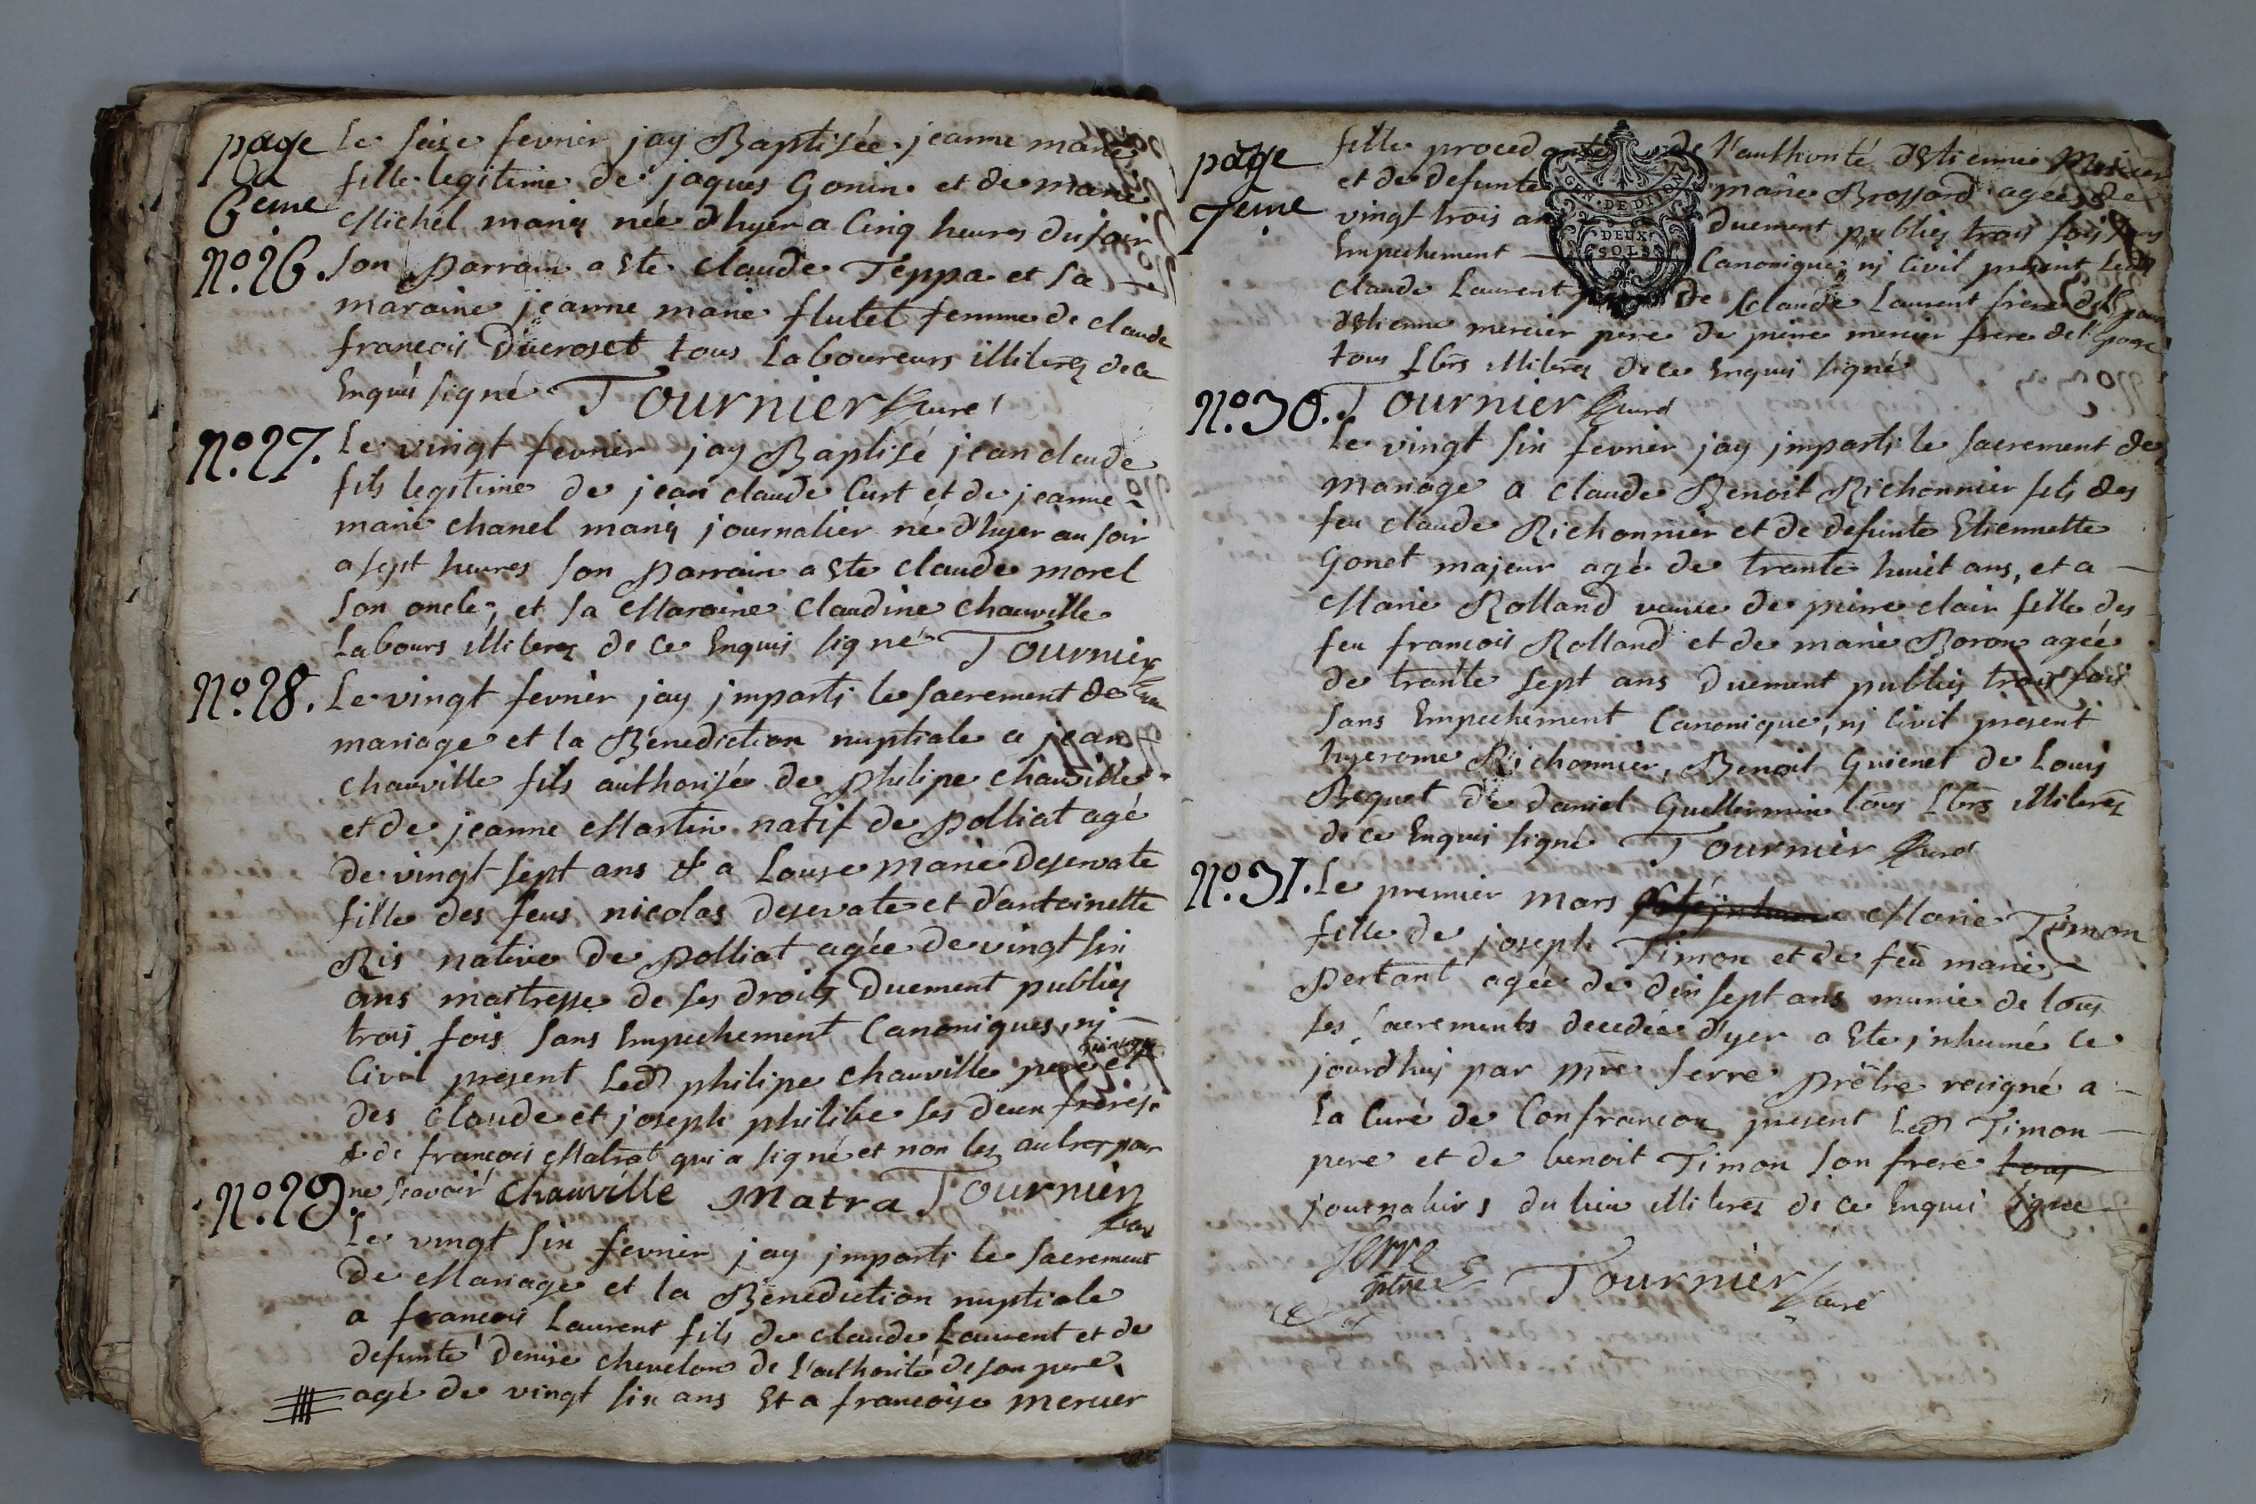 page
6eme
No. 26.
Le seise fevrier jay Baptisée jeanne marie
fille legitime de jaques Gonin et de marie
Michel mariés née d'hyer a Cinq heures du soir
son parrain a Ete claude Teppa et sa
maraine jeanne marie flutet femme de claude
francois Ducroset tous Laboureurs illiteréz de ce
Enquis signé Tournier Curé
No. 27.
Le vingt fevrier jay Baptisé jean claude
fils legitime de jean claude Curt et de jeanne
marie chanel mariés journalier né d'hyer au soir
a sept heures son parrain a Ete claude morel
son oncle, et sa Maraine claudine chauville
Labours illiterez de ce Enquis signé Tournier
Curé
No. 28.
Le vingt fevrier jay imparti le sacrement de
mariage et la Bénédiction nuptiale a jean
chauville fils authorisé de philipe chauville
et de jeanne Martin natif de polliat agé
de vingt sept ans & a Louise Marie Deservate
fille des feus nicolas deservate et d'antoinette
Ris native de polliat agée de vingt six
ans maitresse de ses droits Duement publiés
trois fois sans Empechement Canoniques, nj
Civil present Led. philipe chauville pere et
des claude et joseph philibe ses deux freres
& de francois Matrat qui a signé et non les autres pour
ne scavoir chauville Matra Tournier
Curé
No. 29.
Le vingt six fevrier jay imparti le sacrement
de Mariage et la Benediction nuptiale
a francois Laurent fils de claude Laurent et de
defunte Denise chevelon de l'authorité de son pere
agé de vingt six ans Et a francoise mercier
page
7eme
fille procedante de l'authorité d'Etienne Mercier
et de defunte marie Brossard agée de
vingt trois ans duement publiés trois fois sans
Empechement Canonique, nj Civil present Led.
claude Laurent de claude Laurent frere de l'Epoux
d'Etienne mercier pere de pierre mercier frere de l'Epouse
tous Lbrs illiteréz de ce Enquis signé
Tournier Curé
No. 30.
Le vingt six fevrier jay imparti le sacrement de
Mariage a claude Benoit Richonnier fils des
feu claude Richonnier et de defunte Etiennette
Gonet majeur agé de trante huit ans, et a
Marie Rolland veuve de pierre clair fille des
feu francois Rolland et de marie Boron agée
de trante sept ans Duement publiés trois fois
sans Empechement Canonique, nj Civil present
hyerome Richonnier, Benoit Guienet de Louis
Bequet de daniel Guillermin tous Lbrs illiteréz
de ce Enquis signé Tournier Curé
No. 31.
Le premier mars Marie Timon
fille de joseph Timon et de feu marie
Pertant agée de dix sept ans munie de tous
les sacrements decedée d'yer a Ete inhumé ce
jourd'huj par mre serre prêtre resigné a
la Cure de Confrancon present Led. Timon
pere et de benoit Timon son frere tous
journaliers du lieu illiteréz de ce Enquis signé
serre
ptre Tournier Curé
GEN. DE DIJON
DEUX
SOLS